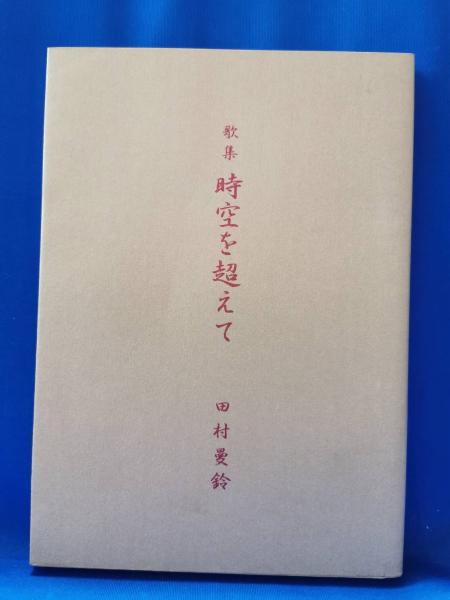 歌集 時空を超えて 田村曼鈴